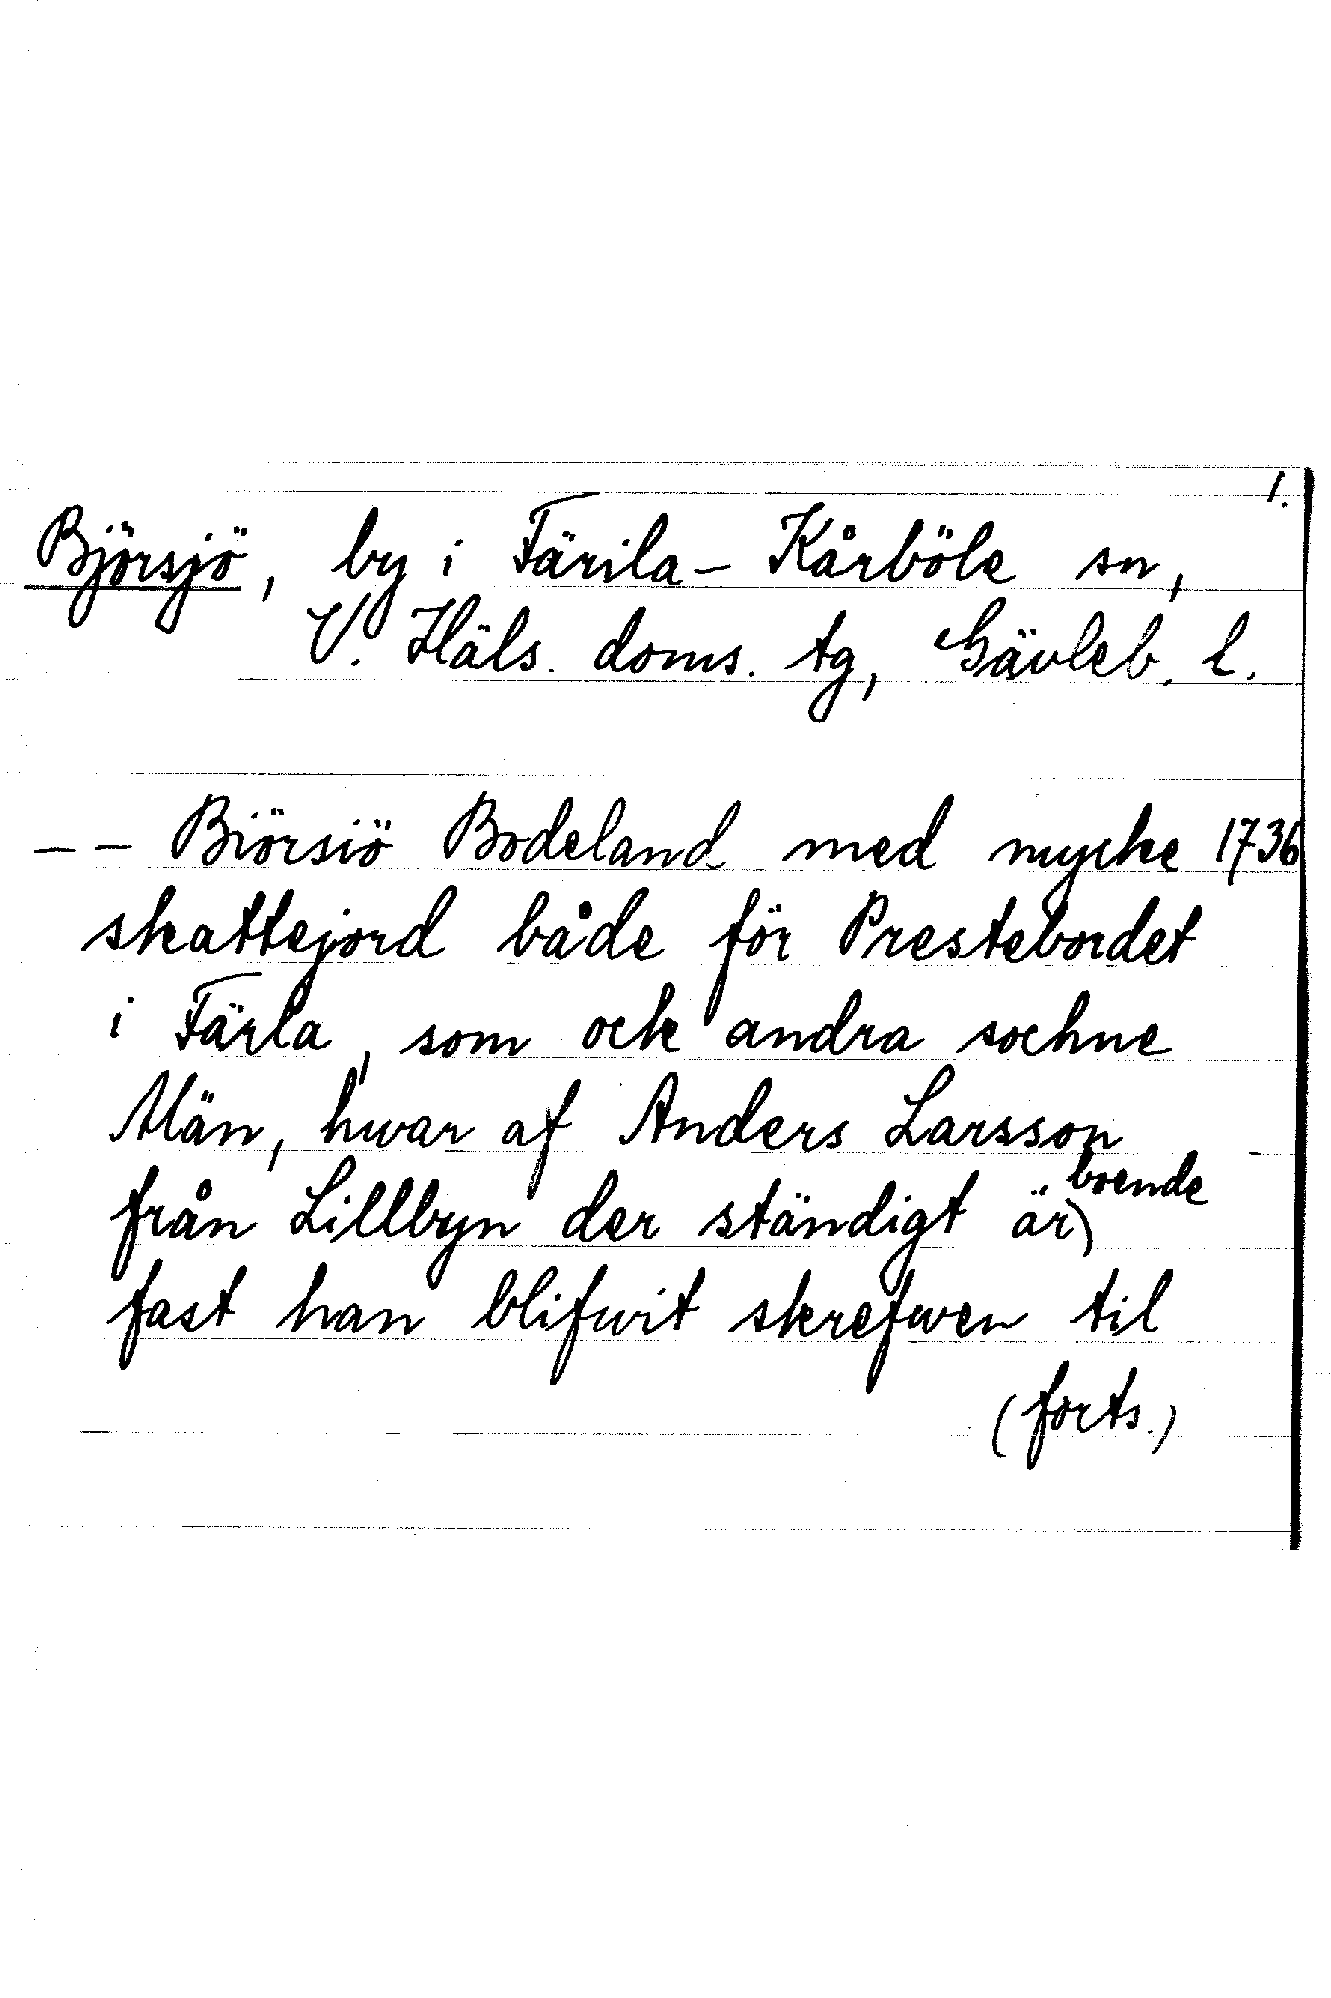 1.
Björsjö, by i Färila-Kårböle sn,
V. Häls. doms. tg, Gävleb. l.
-- Biörsiö Bodeland med mycke 1736
skattejord både för Prestebordet
i Färla, som ock andra sochne
Män, hwar af Anders Larsson
från Lillbyn der ständigt är boende
fast han blifwit skrefwen til
(forts.)